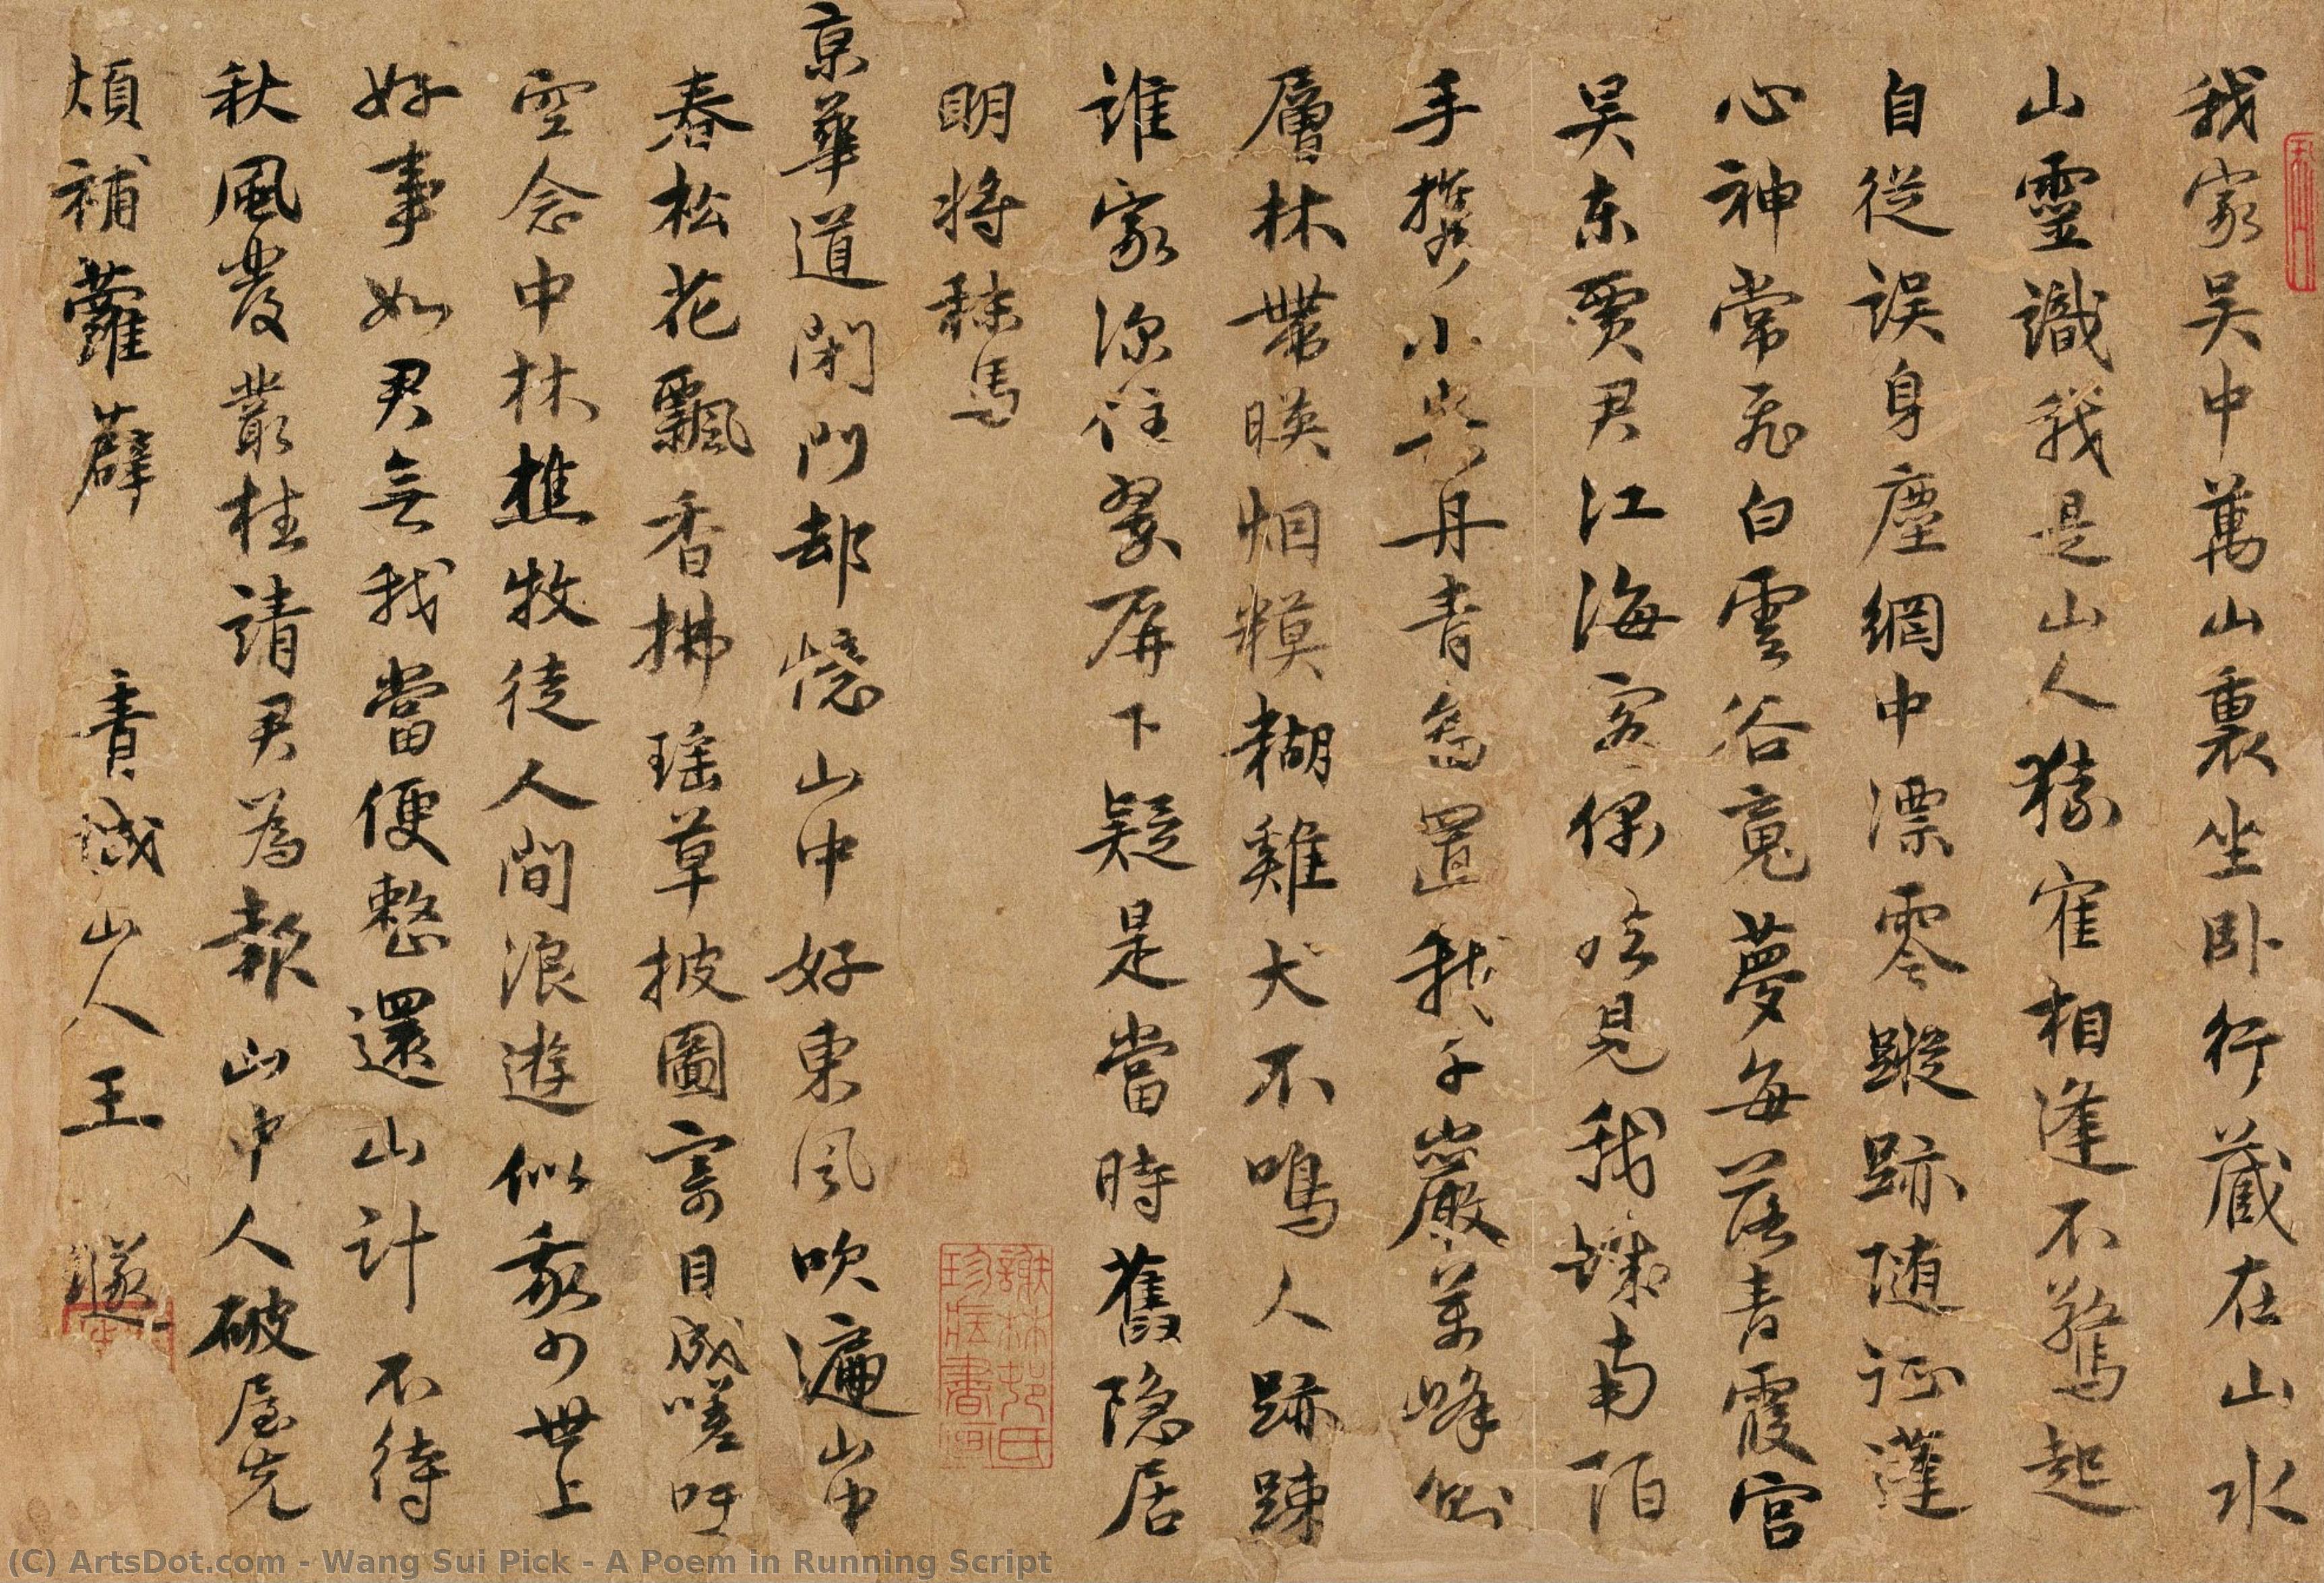 我家吴中萬山裏坐卧行蔵在山水
山靈識我是山人猿寉相逢不驚起
自從误身塵網中漂零蹤跡随征蓬
心神常飛白雲谷竟夢每落青霞宮
吴東賈君江海客偶然見我城南陌
手携小丹青為置我千巖萬峰側
層林帶暎烟糢糊雞犬不鳴人跡踈
誰家深住翠屏下疑是當時舊隐居
明將秣馬
京華道閉門却憶山中好東風吹遍山中
春松花飄香拂瑶草披圖寄目成嗟吁
空念中林樵牧徒人間浪遊似我少世上
好事如君無我當便整還山計不待
秋風發叢桂請君為報山中人破屋先
煩補蘿薜 青城山人王璲
謝林邨氏珍庋書画
(C) ArtsDot.com - Wang Sui Pick - A Poem in Running Script